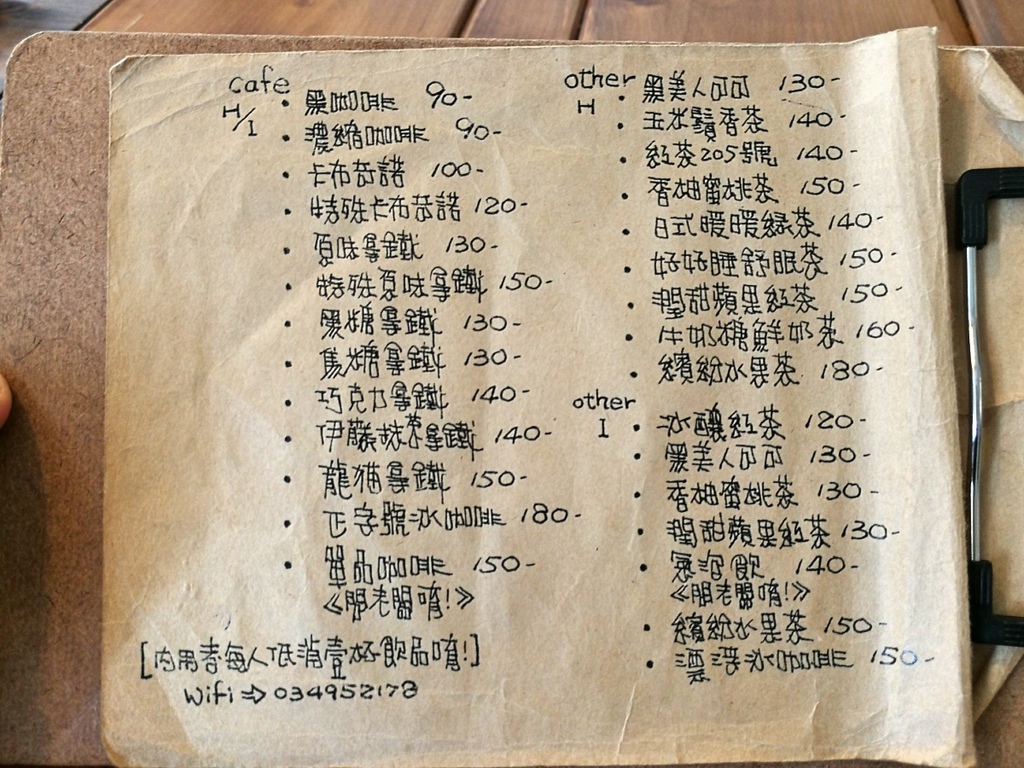 cafe
H/I
• 黑咖啡 90-
• 濃縮咖啡 90-
• 卡布奇諾 100-
• 特殊卡布奇諾 120-
• 原味拿鐵 130-
• 特殊原味拿鐵 150-
• 黑糖拿鐵 130-
• 焦糖拿鐵 130-
• 巧克力拿鐵 140-
• 伊藤抹茶拿鐵 140-
• 龍貓拿鐵 150-
• 正字號冰咖啡 180-
• 單品咖啡 150-
《問老闆唷!》
[內用者每人低消壹杯飲品唷!]
Wifi⇒034952178
other
H
• 黑美人可可 130-
• 玉米鬚香茶 140-
• 紅茶205號 140-
• 香柚蜜桃茶 150-
• 日式暖暖綠茶 140-
• 好好睡舒眠茶 150-
• 潤甜蘋果紅茶 150-
• 牛奶糖鮮奶茶 160-
• 繽紛水果茶 180-
other
I
• 冰釀紅茶 120-
• 黑美人可可 130-
• 香柚蜜桃茶 130-
• 潤甜蘋果紅茶 130-
• 氣泡飲 140-
《問老闆唷!》
• 繽紛水果茶 150-
• 漂浮冰咖啡 150-